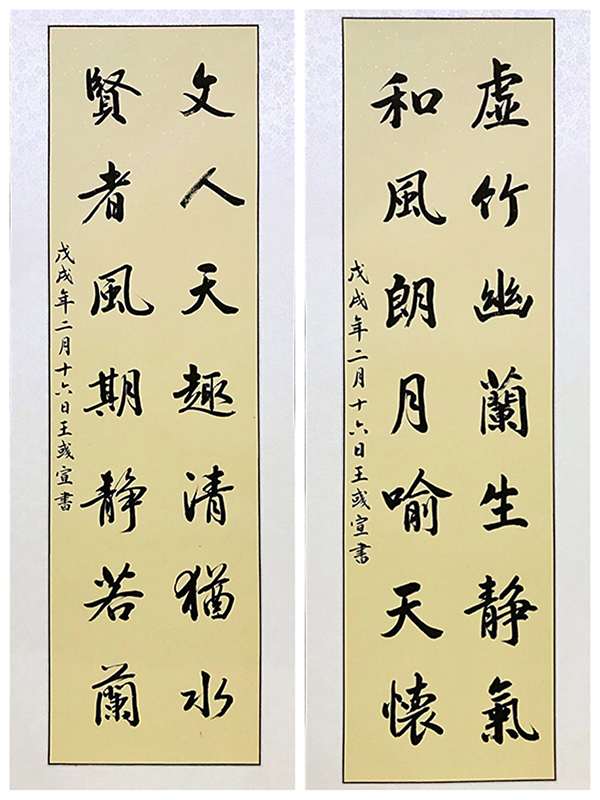 虚竹幽蘭生静氣
和風朗月喻天懐
戊戌年二月十六日王彧宣書
文人天趣清猶水
賢者風期静若蘭
戊戌年二月十六日王彧宣書